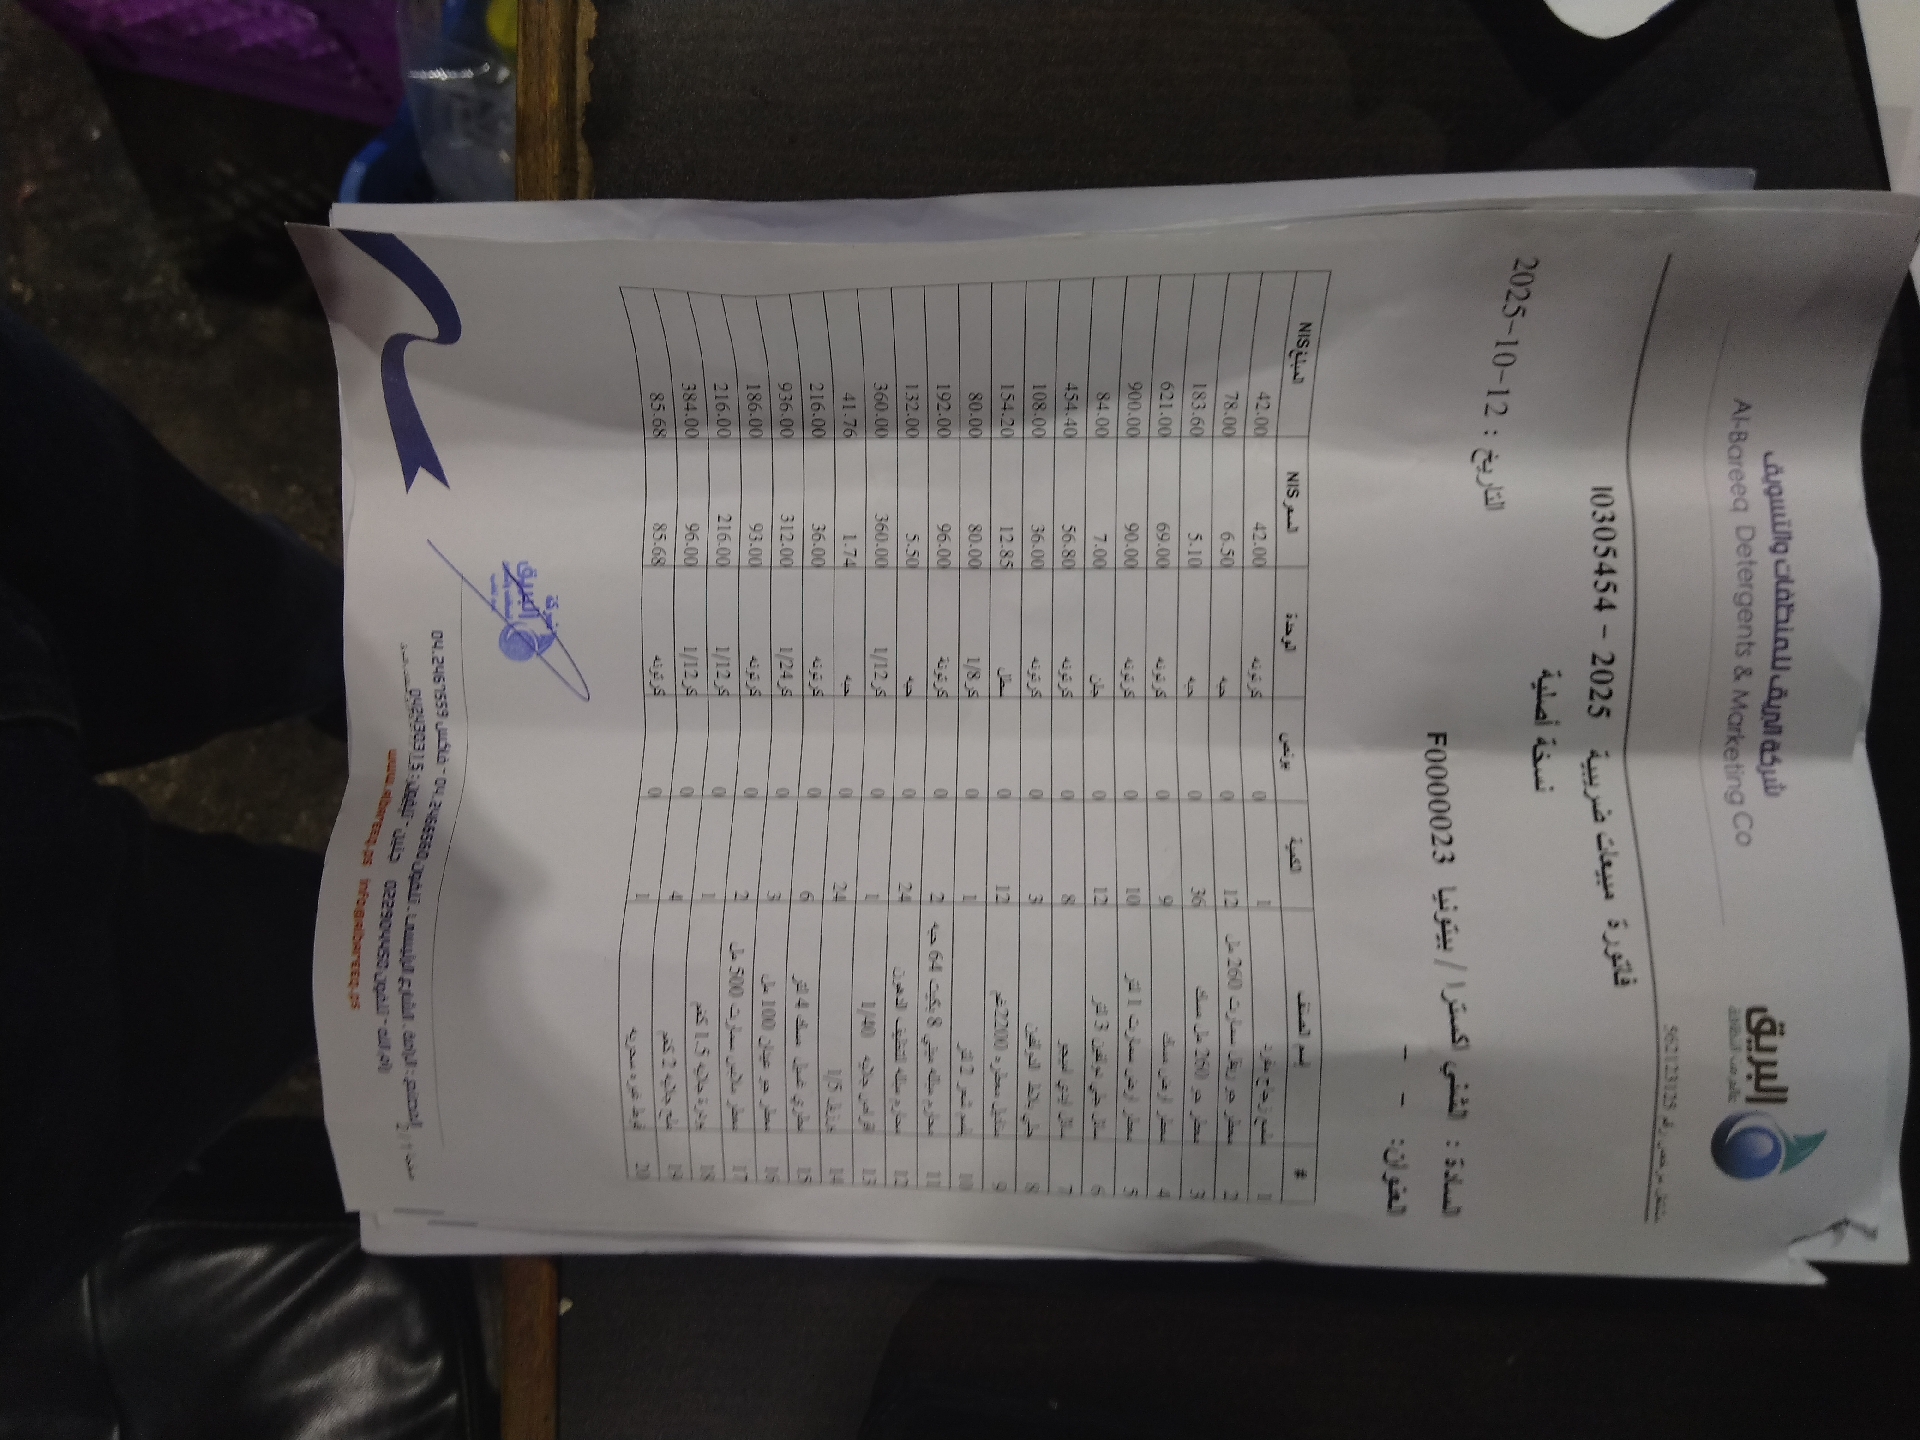 شركة البريق للمنظفات والتسويق
Al-Bareeq Detergents & Marketing Co
البريق
562123125
فاتورة مبيعات ضريبية 2025 - 10305454
نسخة أصلية
التاريخ : 12-10-2025
السادة : الشني اكسترا / بيتونيا F0000023
العنوان: - -
# اسم الصنف الكمية بونص الوحدة السعر NIS المبلغ NIS
1 1 0 كرتونه 42.00 42.00
2 معطر جو ريفل سمارت 260 مل 12 0 حبه 6.50 78.00
3 معطر جو 260 مل مسك 36 0 حبه 5.10 183.60
4 معطر ارض مسك 9 0 كرتونه 69.00 621.00
5 معطر ارض سمارت 1 لتر 10 0 كرتونه 90.00 900.00
6 سائل جلي 3 لتر 12 0 جلن 7.00 84.00
7 سائل ايدي 8 0 كرتونه 56.80 454.40
8 3 0 كرتونه 36.00 108.00
9 2200غم 12 0 سطل 12.85 154.20
10 بلسم شعر 2 لتر 1 0 كر1/8 80.00 80.00
11 محارم مبللة ميني 8 بكيت 64 حبه 2 0 كرتونة 96.00 192.00
12 محارم مبللة لتنظيف الدهون 24 0 حبه 5.50 132.00
13 اقراص جلايه 1/40 1 0 كر1/12 360.00 360.00
14 1/5 24 0 حبه 1.74 41.76
15 مطري غسيل مسك 4 لتر 6 0 كرتونه 36.00 216.00
16 معطر جو 100 مل 3 0 كر1/24 312.00 936.00
17 معطر ملابس سمارت 500 مل 2 0 كرتونه 93.00 186.00
18 بودرة جلايه 1.5 كغم 1 0 كر1/12 216.00 216.00
19 ملح جلايه 2 كغم 4 0 كر1/12 96.00 384.00
20 1 0 كرتونه 85.68 85.68
شركة
البريق
صفحة 1 / 2
04.2466560 - فاكس 04.2461559
جنين - تلفون: 042430315
رام الله - تلفون: 022904450
www.albareeq.ps info@albareeq.ps